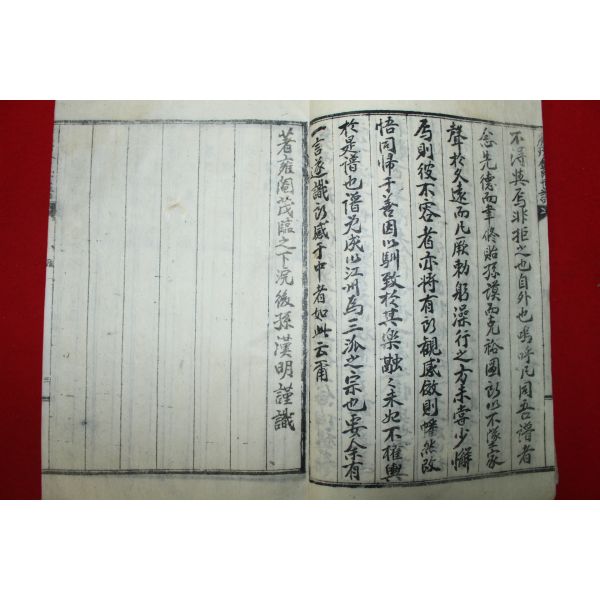 不得與焉非拒之也自外也嗚呼凡同吾譜者
念先德而聿修貽孫謨而克裕圖所以不墜家
聲於久遠而凡厥勅躬澡行之方未嘗少懈
焉則彼不容者亦將有所觀感儆則幡然改
悟同歸于善因以馴致於其樂融々未妃不權輿
於是譜也譜旣成以江州爲三派之宗也要余有
一言遂識所感于中者如此云爾
著雍閹茂臨之下浣後孫漢明謹識